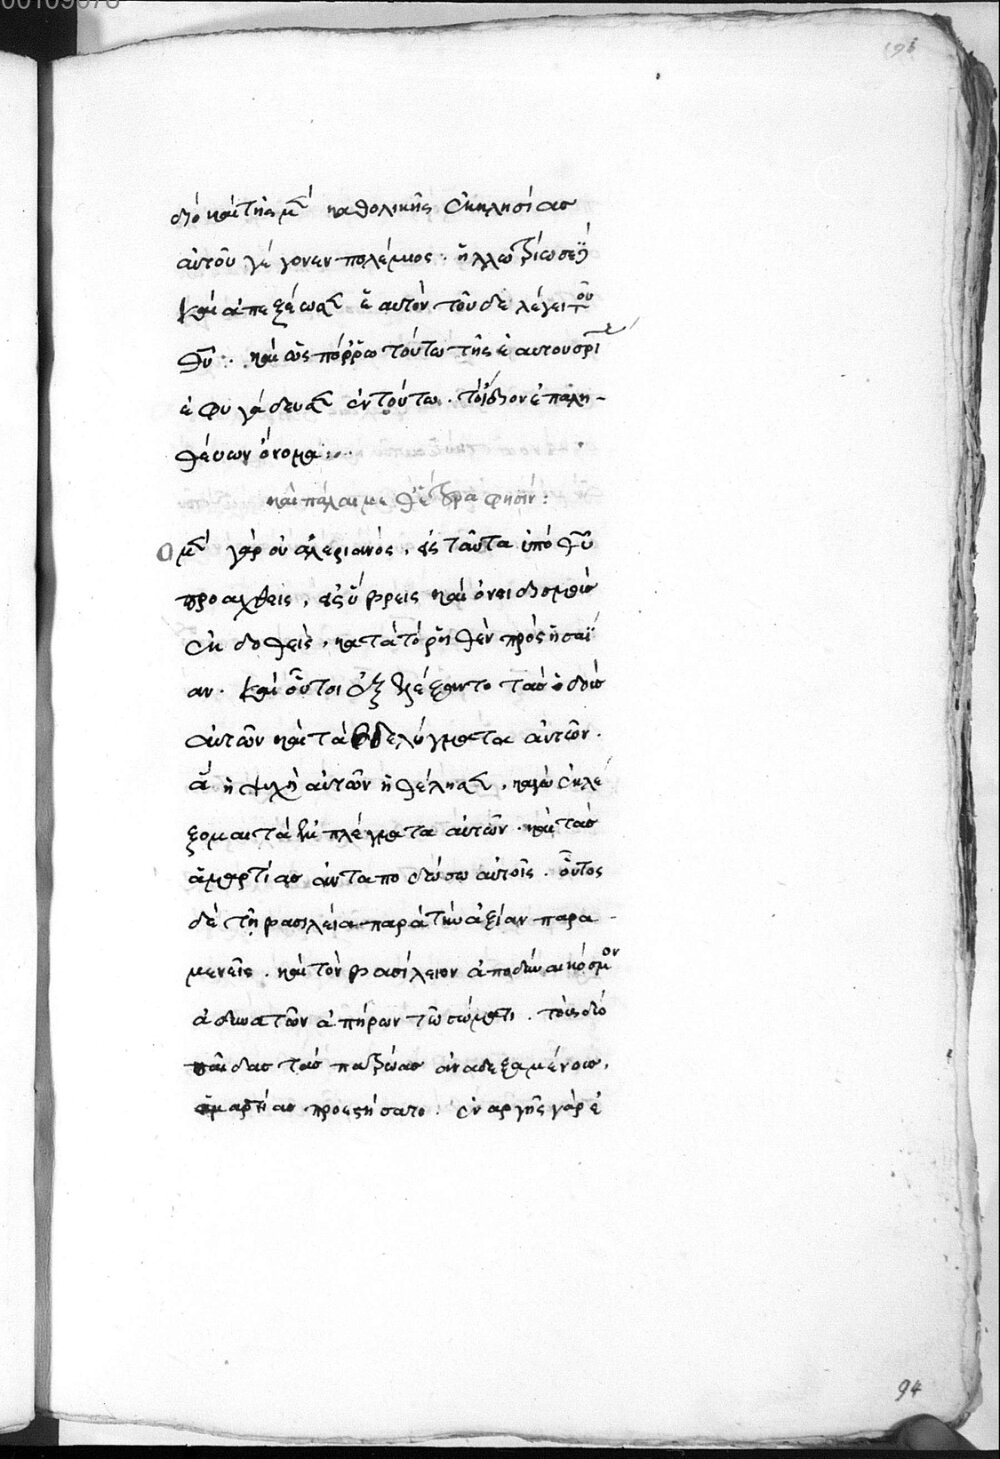 διὸ καὶ τῆς μ(ὲν) καθολικῆς ἐκκλησίας
αὐτοῦ γέγονεν πολέμιος. ἠλλωτρίωσε δὲ
καὶ ἀπεξένωσεν ἑαυτὸν τοῦ δὲ λέγει τοῦ
θυ̅. καὶ ὡς πόρρω τούτω τῆς ἑαυτοῦ σρι̅
ἐφυγάδευσεν ἐν τούτω. τὸ ἴδιον ἐπαλη-
θεύων ὄνομα:
καὶ πάλαι μεθέτερα φησίν:
Ὁ μ(ὲν) γὰρ οὐαλεριανὸς, εἰς ταῦτα ὑπὸ θυ̅
προαχθεὶς, εἰς ὕβρεις καὶ ὀνειδισμοὺς
ἐκδοθεὶς, κατὰ τὸ ῥηθὲν πρὸς ἡσαΐ
αν. καὶ οὗτοι ἐξελέξαντο τὰς ὁδοὺς
αὐτῶν καὶ τὰ βδελύγματα αὐτῶν.
ἃ ἡ ψυχὴ αὐτῶν ἠθέλησεν, καγὼ ἐκλέ
ξομαι τὰ ἐμπλέγματα αὐτῶν. καὶ τὰς
ἁμαρτίας ἀνταποδώσω αὐτοῖς. οὗτος
δὲ τῆ βασιλεία παρὰ τὴν ἀξίαν παρα-
μενεῖς. καὶ τὸν βασίλειον ἀποδῦναι κόσμον
ἀδυνατῶν ἀπήρων τῶ σώματι. τοὺς δύο
παῖδας τὰς πατρώας ἀναδεξαμένους,
ἁμαρτίας προεστήσατο. ἐναργὴς γὰρ ἐ
94